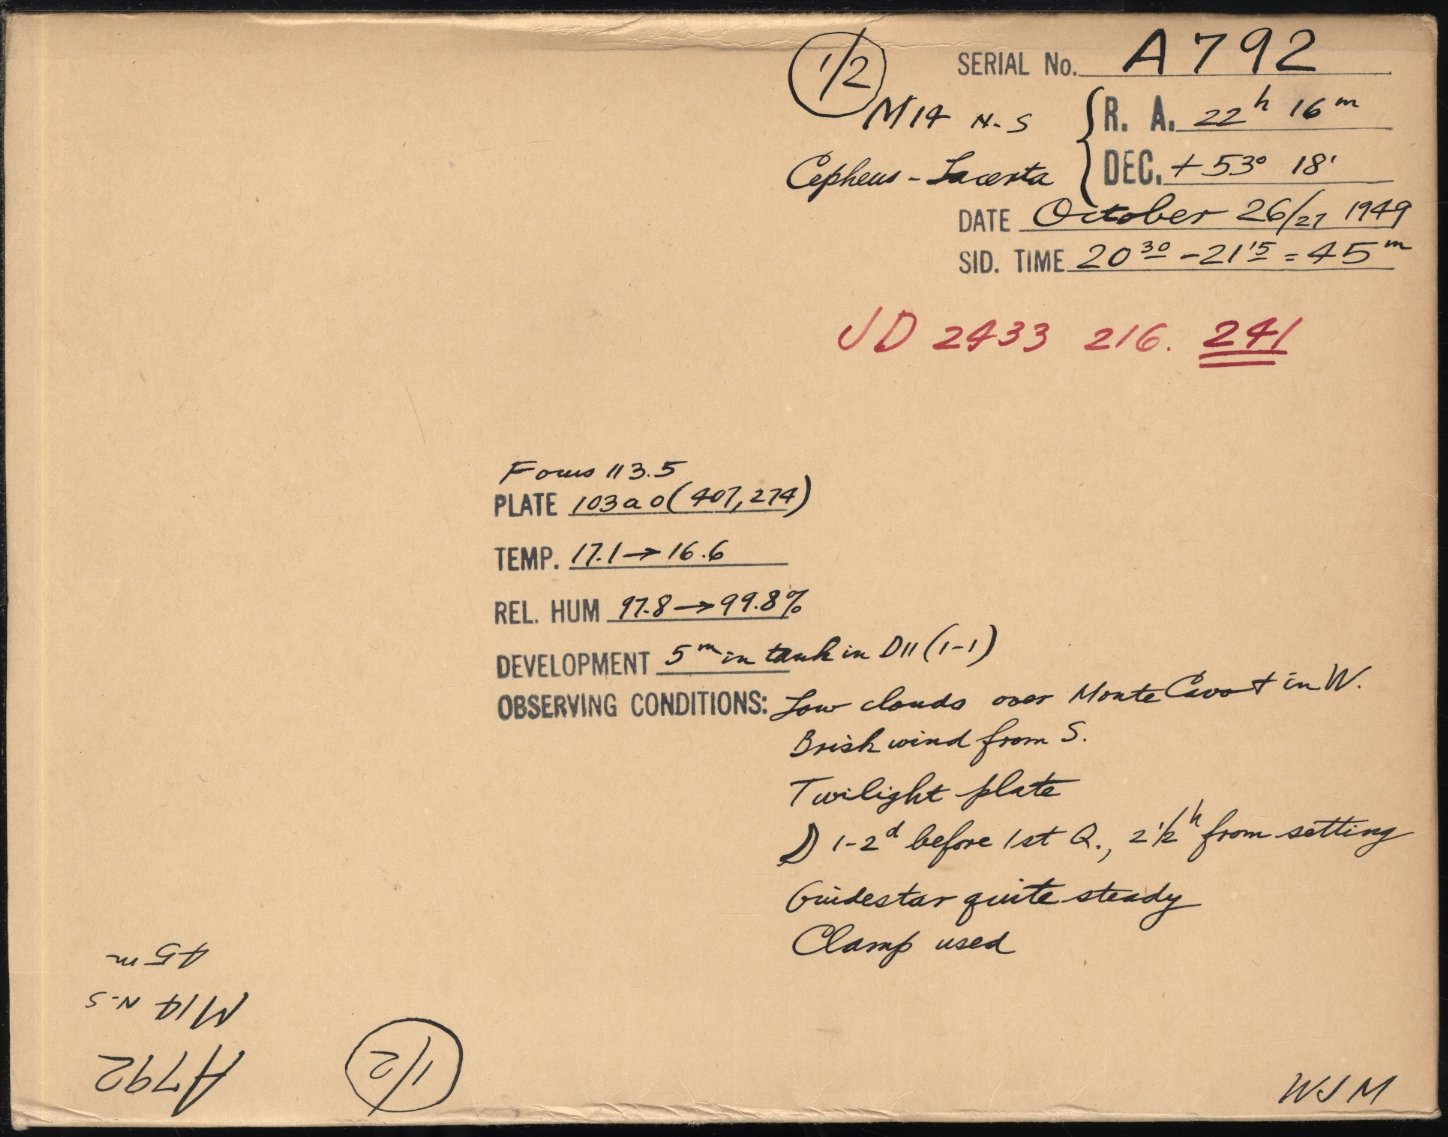 1/2
SERIAL No. A792
M14 N-S
R. A. 22h 16m
Cepheus - Lacerta
DEC. +53° 18'
DATE October 26/27 1949
SID. TIME 20 30 - 21 15 = 45m
JD 2433 216. 241
Focus 113.5
PLATE 103a0 (407,274)
TEMP. 17.1 → 16.6
REL. HUM 97.8 → 99.8%
DEVELOPMENT 5m in tank in D11 (1-1)
OBSERVING CONDITIONS: Low clouds over Monte Cavo + in W.
Brisk wind from S.
Twilight plate
☽ 1-2d before 1st Q., 2 1/2h from setting
Guidestar quite steady
Clamp used
A792
M14 N-S
45m
1/2
WJM